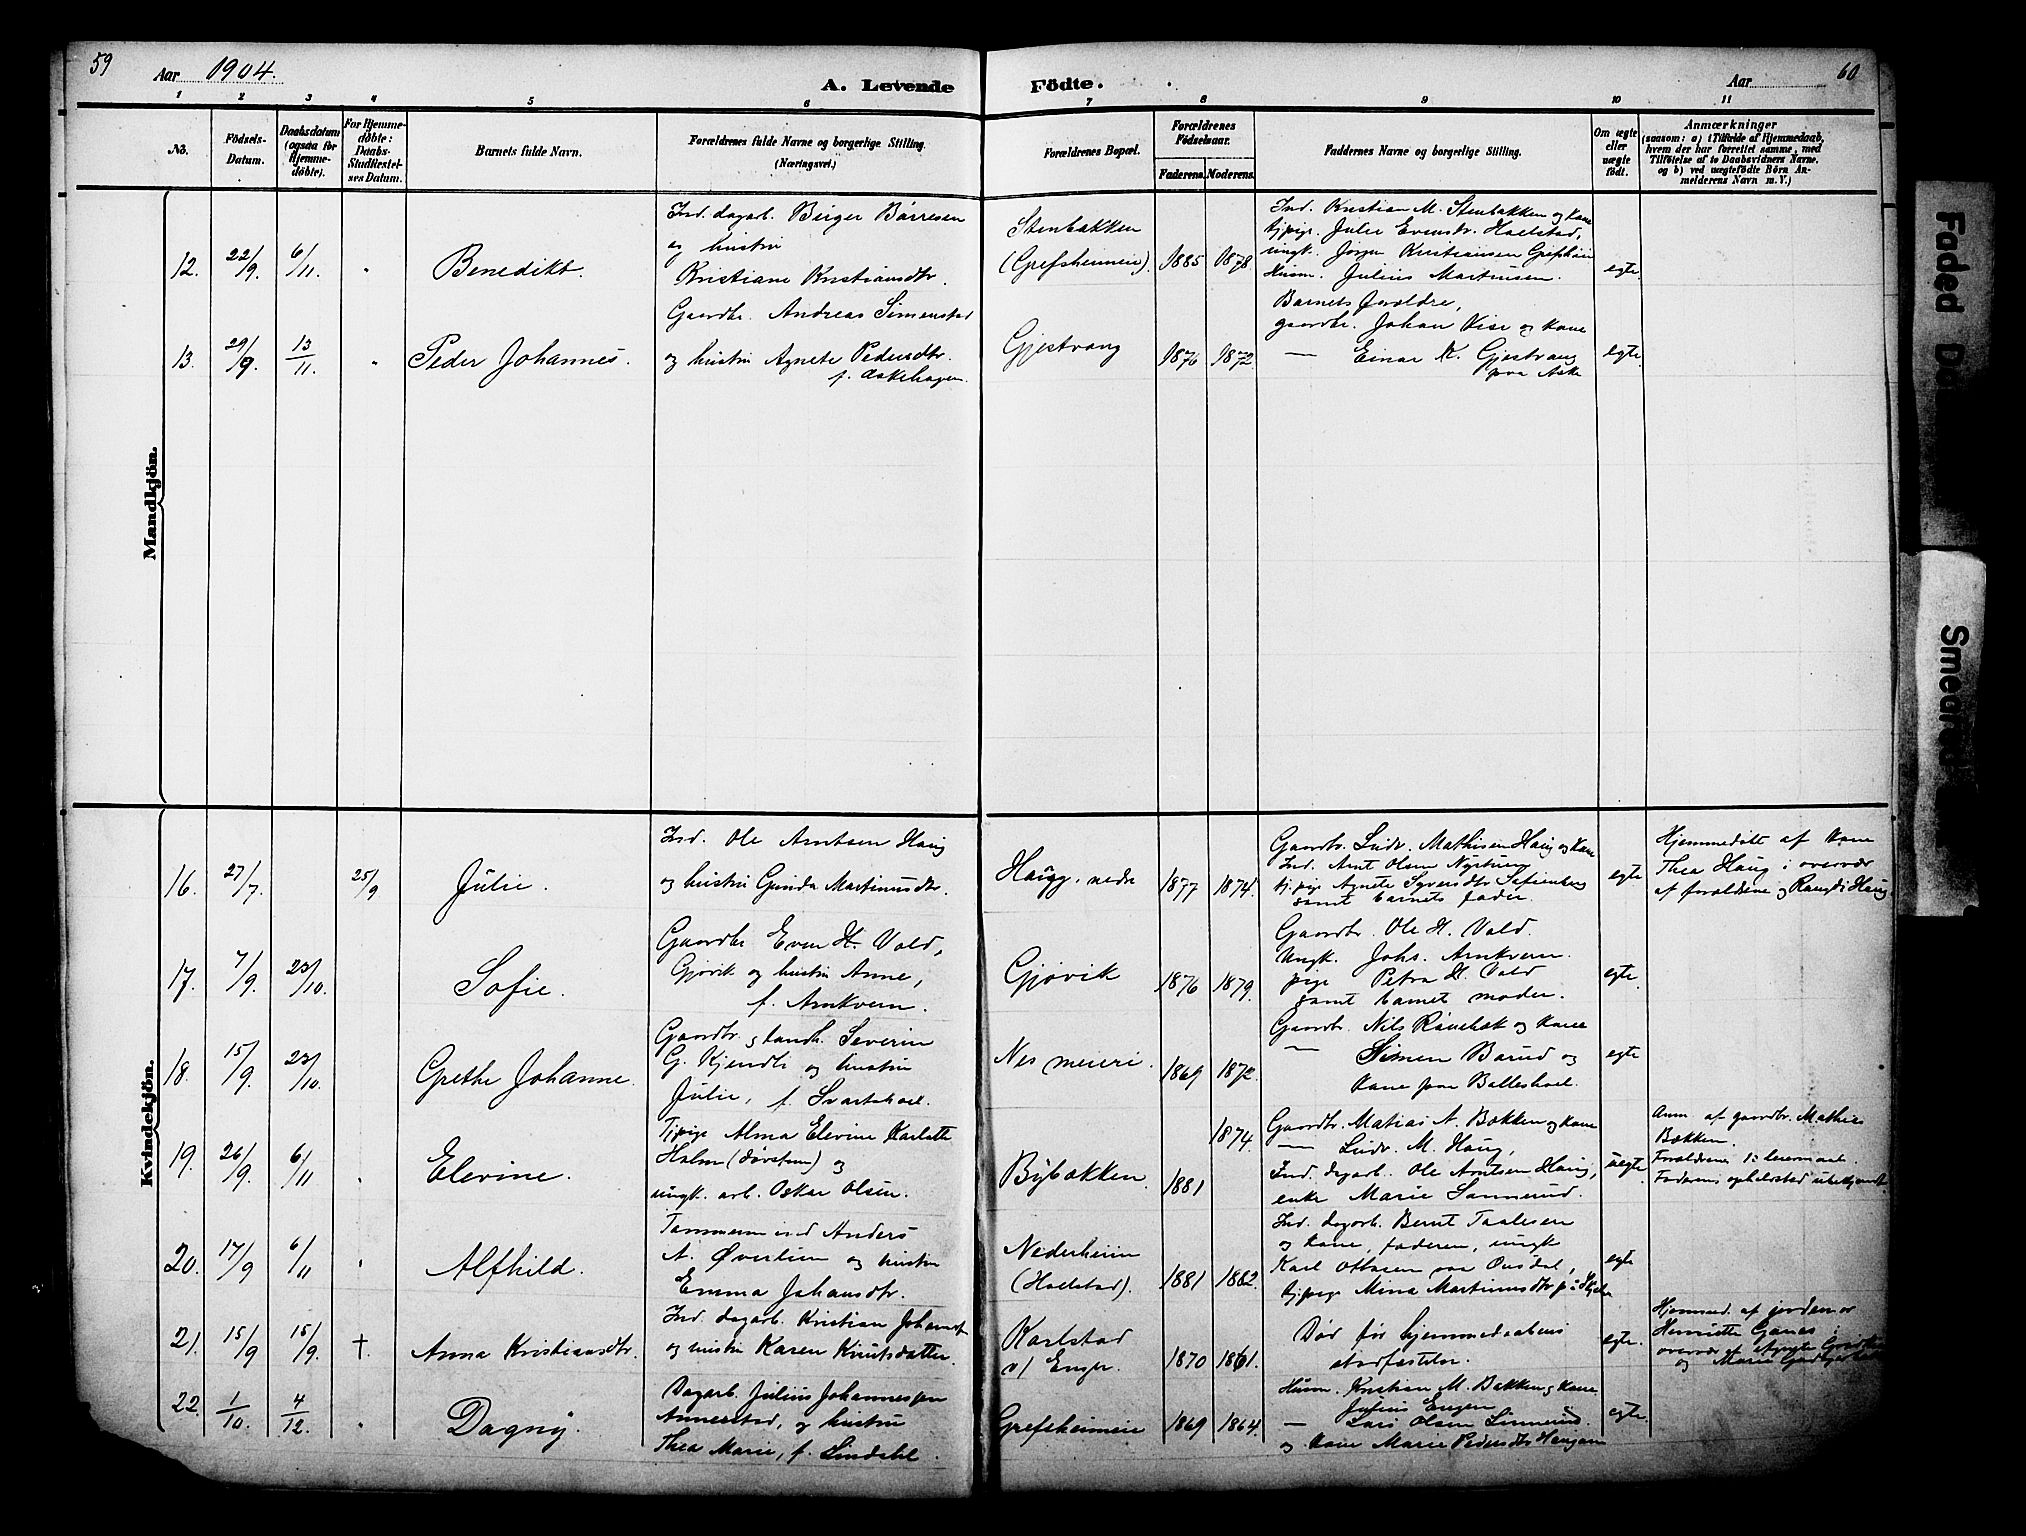 59
Aar 1904.
A. Levende Födte.
Aar
60
1 2 3 4 5 6 7 8 9 10 11
No.
Födsels-Datum.
Daabsdatum (ogsaa for Hjemmedöbte).
For Hjemmedöbte: Daabs-Stadfæstelses Datum.
Barnets fulde Navn.
Forældrenes fulde Navne og borgerlige Stilling. (Næringsvei.)
Forældrenes Bopæl.
Forældrenes Födselsaar.
Faderens. Moderens.
Faddernes Navne og borgerlige Stilling.
Om ægte eller uægte födt.
Anmærkninger
(saasom: a) i Tilfælde af Hjemmedaab, hvem der har forrettet samme, med Tilföielse af to Daabsvidners Navne, og b) ved uægtefödte Börn Anmelderens Navn m. V.)
Mandkjön.
12. 22/9. 6/11. " Benedikt.
Ind. dagarb. Birger Börresen
og hustru
Kristiane Kristiansdtr.
Stenbakken
(Grefsheimeie). 1885 1878
Ind. Kristian M. Stenbakken og kone
tjpige. Julie Evensdtr. Hoelstad,
ungk. Jörgen Kristiansen Grefsheim
Husm. Julius Martinsen.
egte
13. 29/9. 13/11. " Peder Johannes.
Gaardbr. Andreas Simenstad
og hustru Agnete Pedersdtr.
f. Askehagen.
Gjestvang 1876 1872
Barnets forældre,
gaardbr. Johan Vise og kone
— Einar K. Gjestvang
paa Aske
egte.
Kvindekjön.
16. 27/7. 25/9. Julie.
Ind. Ole Arntsen Haug
og hustru Gunda Martinusdtr.
Haug, nedre 1877 1874.
Gaardbr. Ludv. Mathisen Haug og kone
Ind. Arnt Olsen Nystuen
tjpige Agnete Syversdtr.
samt barnets fader.
egte
Hjemmedöbt af kone
Thea Haug i overvær
af forældrene og Haug.
17. 7/9. 23/10. Sofie.
Gaardbr. Even H. Vold,
Gjövik og hustru Anne,
f. Arnkvern.
Gjövik 1876 1879.
Gaardbr. Ole H. Vold.
Ungk. Johs. Arnkvern.
pige Petra H. Vold
samt barnet moder.
egte
18. 15/9. 23/10. Grethe Johanne.
Gaardbr. og landh. Severin
G. Kjendli og hustru
Julie, f. Svartshoel.
Nes meieri. 1869 1872
Gaardbr. Nils Rönebæk og kone
— Simen Barud og
kone paa Balleshoel.
egte
19. 26/9. 6/11. " Elevine.
Tjpige Alma Elevine Karlotte
Holm (Dörstuen) og
ungk. arb. Oskar Olsen.
Bybakken. 1881 1874.
Gaardbr. Matias A. Bakken og kone
— Ludv. M. Haug,
Ind. dagarb. Ole Arntsen Haug,
enke Marie Sannerud.
uegte
Anm. af gaardbr. Mathias
Bakken.
Forældrenes 1ste leiermaal.
Faderens opholdssted ubekjendt.
20. 17/9 6/11 " Alfhild.
Tömmermand Anders
A. Överlien og hustru
Emma Johansdtr.
Nederheim
(Hoelstad). 1881 1882.
Ind. dagarb. Bernt Taalesen
og kone, faderen, ungk
Karl Ottosen paa
tjpige Mina Martinusdtr
egte
21. 15/9 15/9. †. Anna Kristiansdtr.
Ind. dagarb. Kristian Johansen
og hustru Karen Knutsdatter.
Karlstad
v/ Enger. 1870 1861.
Död för hjemmedaabens
stadfæstelse.
egte.
Hjemmed. af jordemor
Henriette Ganes i
overvær af Agnete
og Marie
22. 1/10. 4/12. " Dagny.
Dagarb. Julius Johannessen
Annerstad, og hustru
Thea Marie, f. Lindahl.
Grefsheimeie 1869 1864.
Husm. Kristian M. Bakken og kone
Julius Engen
— Lars Olsen Linnerud.
og kone Marie Pedersdtr Haugen
egte
Faded Da
Smeared